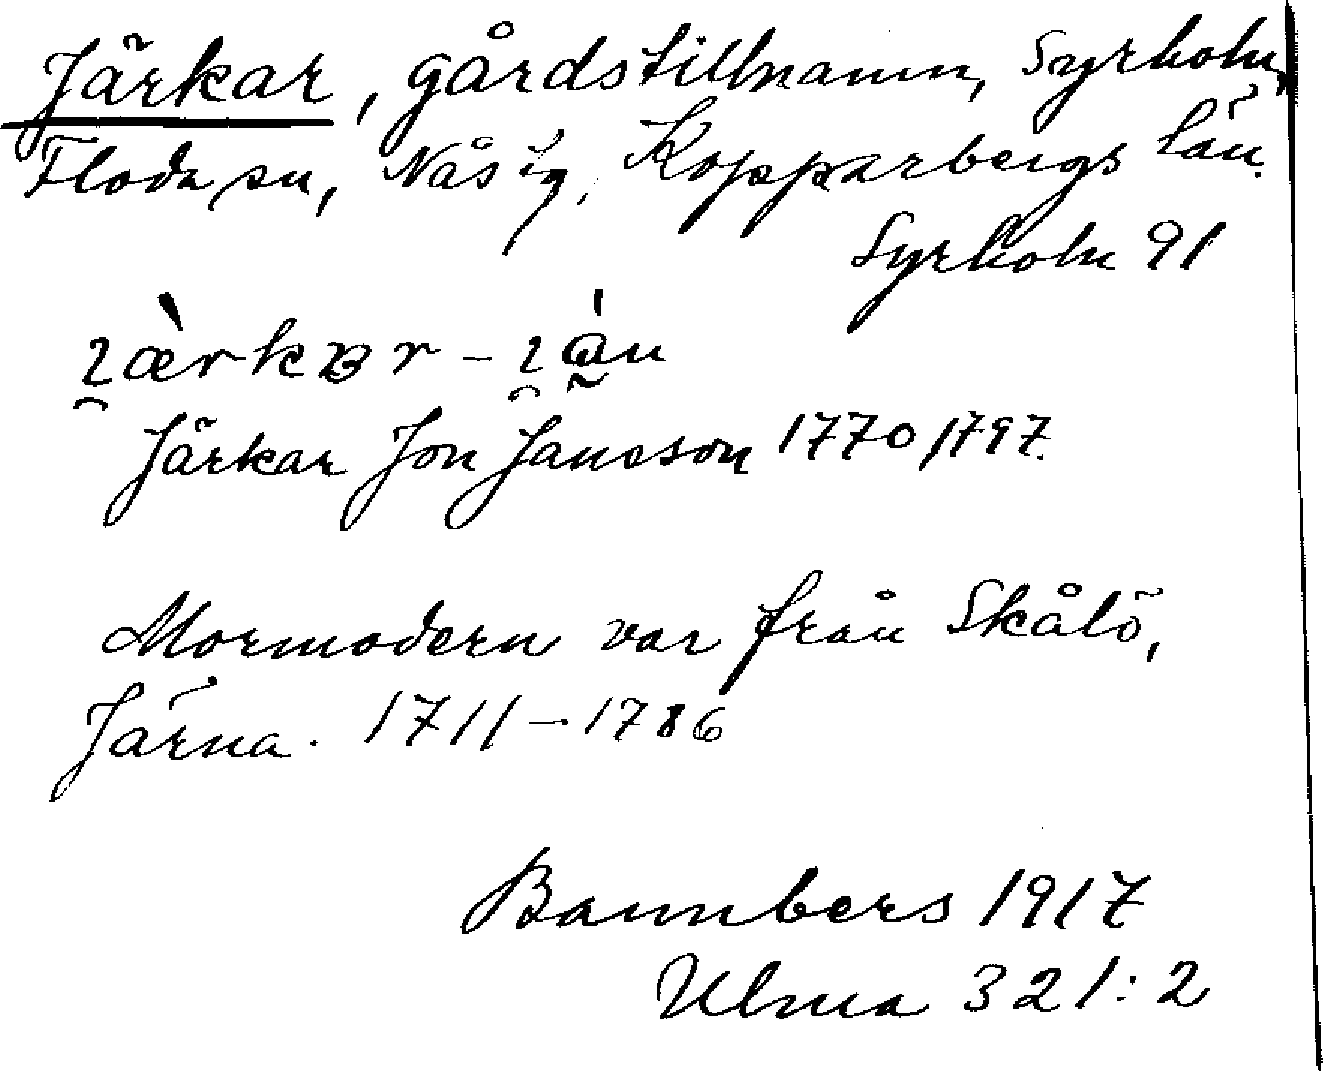 Järkar, gårdstillnamn, Syrholn,
Floda sn, Nås tg, Kopparbergs län.
Syrholn 91
Järkar Jon Jansson 1770/1797.
Mormodern var från Skålö,
Järna. 1711-1786
Bannbers 1917
Ulma 321:2